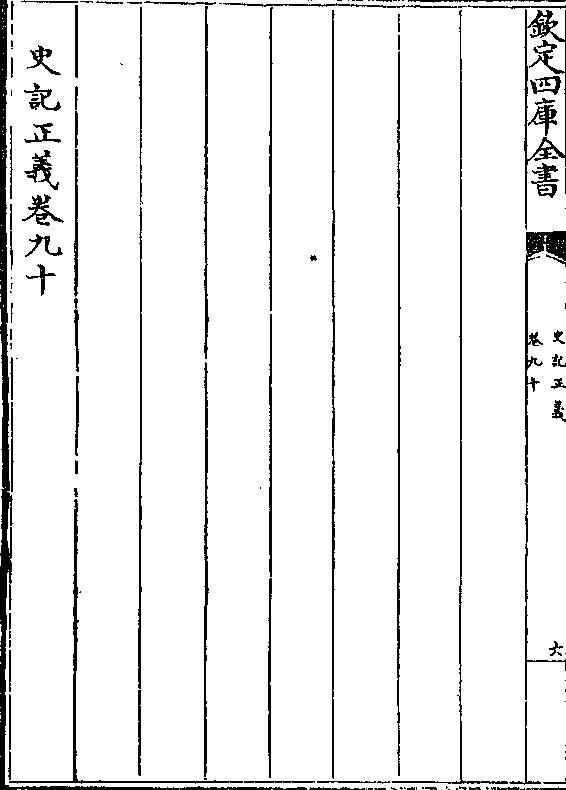 欽定四庫全書
史記正義
卷九十
六
史記正義卷九十